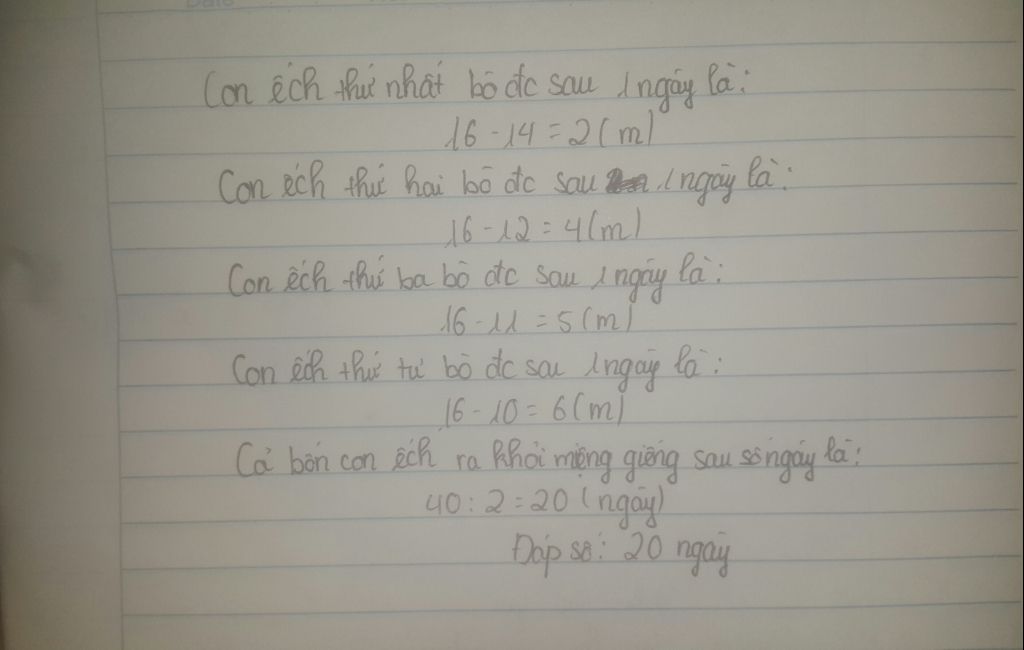 Con ếch thứ nhất bò đc sau 1 ngày là:
16 - 14 = 2 (m)
Con ếch thứ hai bò đc sau 1 ngày là:
16 - 12 = 4 (m)
Con ếch thứ ba bò đc sau 1 ngày là:
16 - 11 = 5 (m)
Con ếch thứ tư bò đc sau 1 ngày là:
16 - 10 = 6 (m)
Cả bốn con ếch ra khỏi miệng giếng sau số ngày là:
40 : 2 = 20 (ngày)
Đáp số: 20 ngày